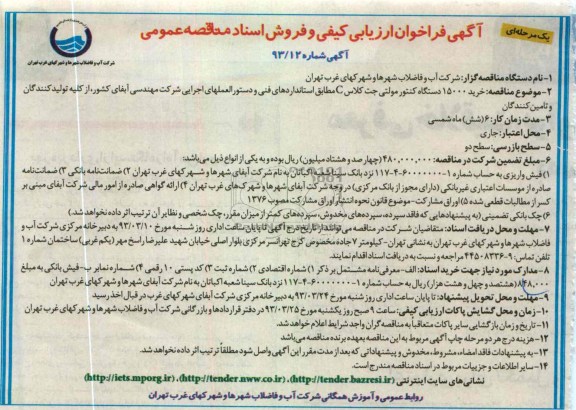 یک مرحله‌ای
آگهی فراخوان ارزیابی کیفی و فروش اسناد مناقصه عمومی
آگهی شماره ۹۳/۱۲
شرکت آب و فاضلاب شهرها و شهرکهای غرب تهران
۱- نام دستگاه مناقصه گزار: شرکت آب و فاضلاب شهرها و شهرکهای غرب تهران
۲- موضوع مناقصه: خرید ۱۵۰۰۰ دستگاه کنتور مولتی جت کلاس C مطابق استانداردهای فنی و دستورالعملهای اجرایی شرکت مهندسی آبفای کشور، از کلیه تولید کنندگان
و تامین کنندگان
۳- مدت زمان کار: ۶ (شش) ماه شمسی
۴- محل اعتبار: جاری
۵- سطح بازرسی: سطح دو
۶- مبلغ تضمین شرکت در مناقصه: ۴۸۰,۰۰۰,۰۰۰ (چهارصد و هشتاد میلیون) ریال بوده و به یکی از انواع ذیل می‌باشد:
۱) فیش واریزی به حساب شماره ۱-۶۰۰۰۰۰۰۰-۴-۱۱۷ نزد بانک سینا شعبه اکباتان به نام شرکت آبفای شهرها و شهرکهای غرب تهران ۲) ضمانت‌نامه بانکی ۳) ضمانت‌نامه
صادره از موسسات اعتباری غیربانکی (دارای مجوز از بانک مرکزی) در وجه شرکت آبفای شهرها و شهرکهای غرب تهران ۴) ارائه گواهی صادره از امور مالی شرکت آبفای مبنی بر
کسر از مطالبات قطعی شده ۵) اوراق مشارکت- موضوع قانون نحوه انتشار اوراق مشارکت مصوب ۱۳۷۶
۶) چک بانکی تضمینی (به پیشنهادهایی که فاقد سپرده، سپرده‌های مخدوش، سپرده‌های کمتر از میزان مقرر، چک شخصی و نظایر آن ترتیب اثر داده نخواهد شد.)
۷- مهلت و محل دریافت اسناد: متقاضیان شرکت در مناقصه می توانند از تاریخ درج آگهی تا پایان ساعت اداری روز شنبه مورخ ۹۳/۰۳/۱۰ به دبیرخانه مرکزی شرکت آب و
فاضلاب شهرها و شهرکهای غرب تهران به نشانی تهران- کیلومتر ۷ جاده مخصوص کرج تهرانسر مرکزی بلوار اصلی خیابان شهید علیرضا راسخ مهر (یکم غربی) ساختمان شماره ۱
تلفن تماس: ۹-۴۴۵۰۸۳۳۶ مراجعه و نسبت به دریافت اسناد اقدام نمایند.
۸- مدارک مورد نیاز جهت خرید اسناد: الف- معرفی‌نامه مشتمل بر ذکر ۱) شماره اقتصادی ۲) شماره ثبت ۳) کد پستی ۱۰ رقمی ۴) شماره نمابر ب- فیش بانکی به مبلغ
۸۴۸,۰۰۰ (هشتصد و چهل و هشت هزار) ریال به حساب شماره ۱-۶۰۰۰۰۰۰۰-۴-۱۱۷ نزد بانک سینا شعبه اکباتان به نام شرکت آبفای شهرها و شهرکهای غرب تهران
۹- مهلت و محل تحویل پیشنهاد: تا پایان ساعت اداری روز شنبه مورخ ۹۳/۰۳/۲۴ به دبیرخانه مرکزی شرکت آبفای شهرکهای غرب در قبال اخذ رسید
۱۰- زمان و محل گشایش پاکات ارزیابی کیفی: ساعت ۹ صبح روز یکشنبه مورخ ۹۳/۰۳/۲۵ در دفتر قراردادها و بازرگانی شرکت آب و فاضلاب شهرها و شهرکهای غرب تهران
۱۱- تاریخ و زمان بازگشایی سایر پاکات متعاقباً به مناقصه گران واجد شرایط اعلام خواهد شد.
۱۲- هزینه درج هر دو مرحله چاپ آگهی مربوط به این مناقصه بعهده برنده مناقصه می‌باشد
۱۳- به پیشنهادات فاقد امضاء، مشروط، مخدوش و پیشنهاداتی که بعد از مدت مقرر این آگهی واصل شود مطلقاً ترتیب اثر داده نخواهد شد.
۱۴- سایر اطلاعات و جزییات مربوط در اسناد مناقصه مندرج است.
نشانی های سایت اینترنتی (http://tender.bazresi.ir)، (http://tender.nww.co.ir)، (http://iets.mporg.ir)
روابط عمومی و آموزش همگانی شرکت آب و فاضلاب شهرها و شهرکهای غرب تهران